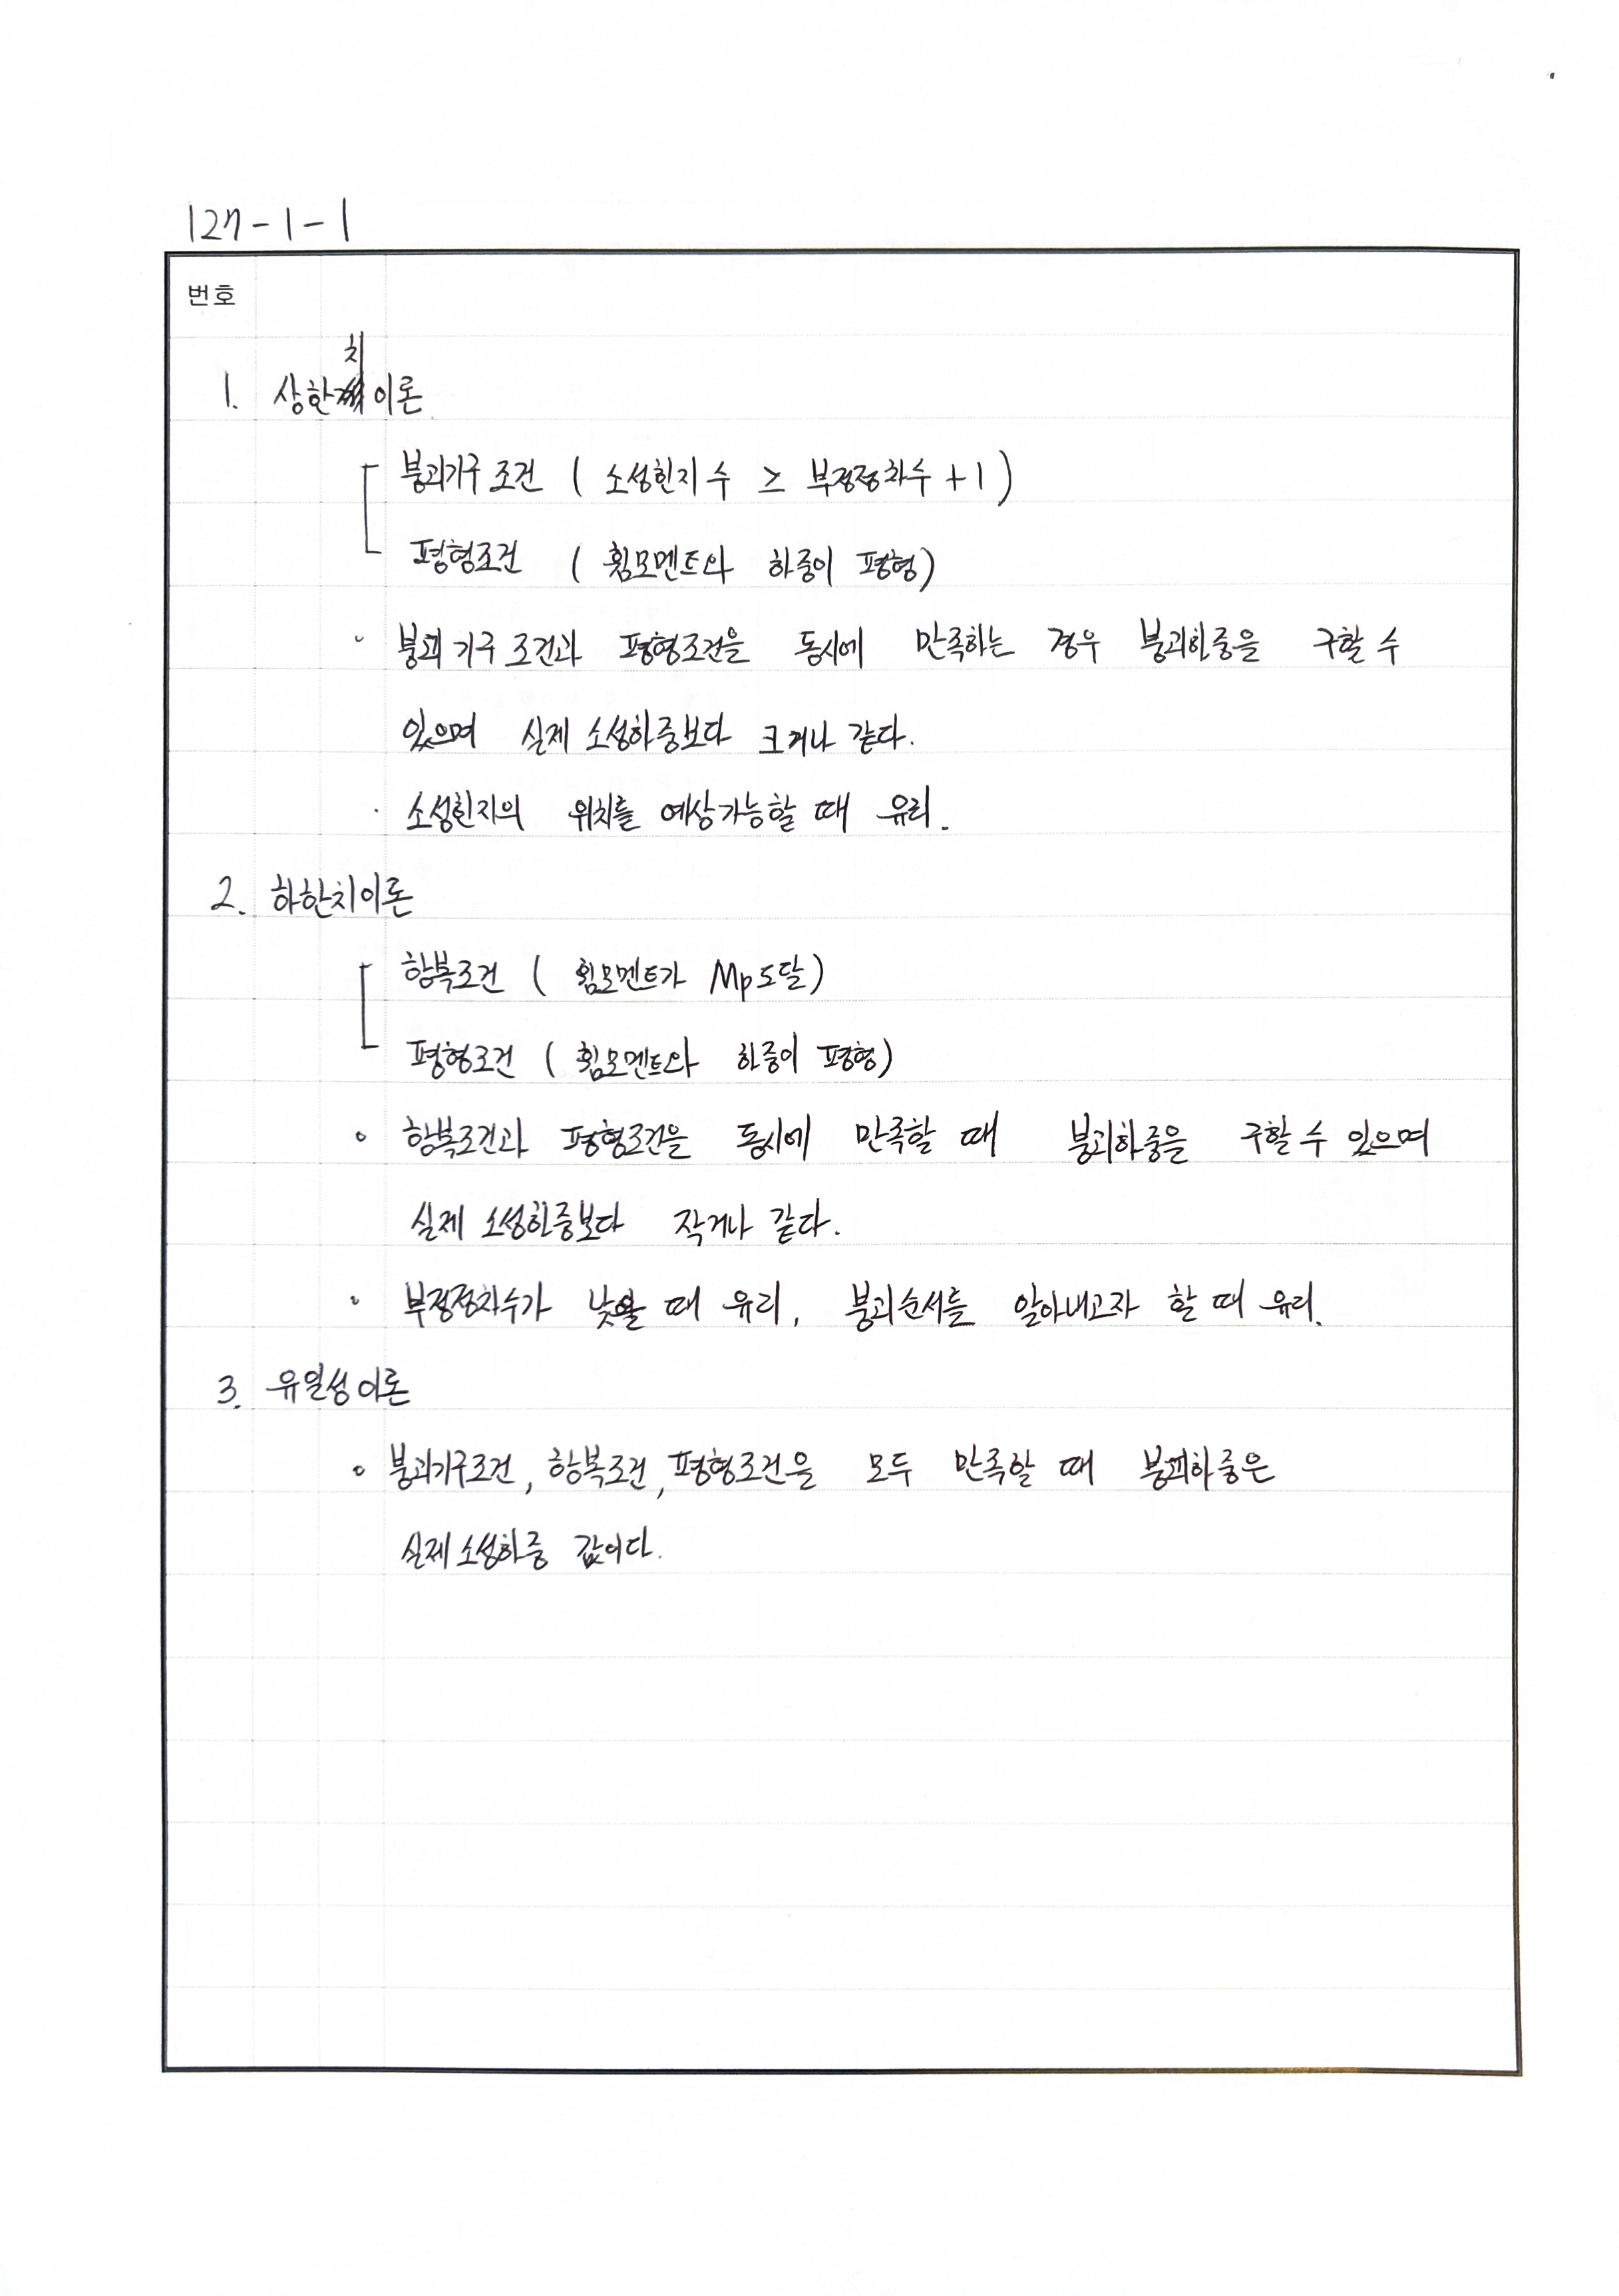 127-1-1
번호
1. 상한치이론
붕괴기구 조건 ( 소성힌지 수 ≥ 부정정차수 +1)
평형조건 ( 휨모멘트와 하중이 평형)
· 붕괴기구 조건과 평형조건을 동시에 만족하는 경우 붕괴하중을 구할 수
있으며 실제 소성하중보다 크거나 같다.
· 소성힌지의 위치를 예상가능할 때 유리.
2. 하한치이론
항복조건 ( 휨모멘트가 Mp도달)
평형조건 ( 휨모멘트와 하중이 평형)
∘ 항복조건과 평형조건을 동시에 만족할 때 붕괴하중을 구할 수 있으며
실제 소성하중보다 작거나 같다.
∘ 부정정차수가 낮을 때 유리, 붕괴순서를 알아내고자 할 때 유리.
3. 유일성이론
∘ 붕괴기구조건, 항복조건, 평형조건을 모두 만족할 때 붕괴하중은
실제소성하중 값이다.